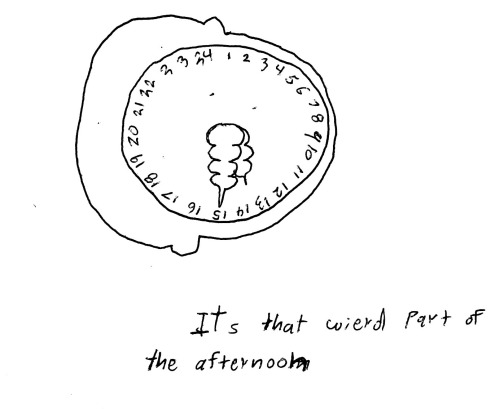 1 2 3 4 5 6 7 8 9 10 11 12 13 14 15 16 17 18 19 20 21 22 23 24
ITs that wierd Part of
the afternoon